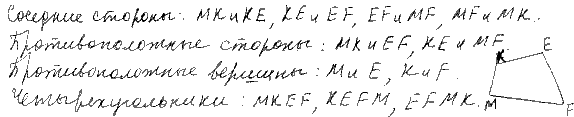 Соседние стороны: MK и KE, KE и EF, EF и MF, MF и MK.
Противоположные стороны: MK и EF, KE и MF.
Противоположные вершины: M и E, K и F.
Четырехугольники: MKEF, KEFM, EFMK.
K E
M F